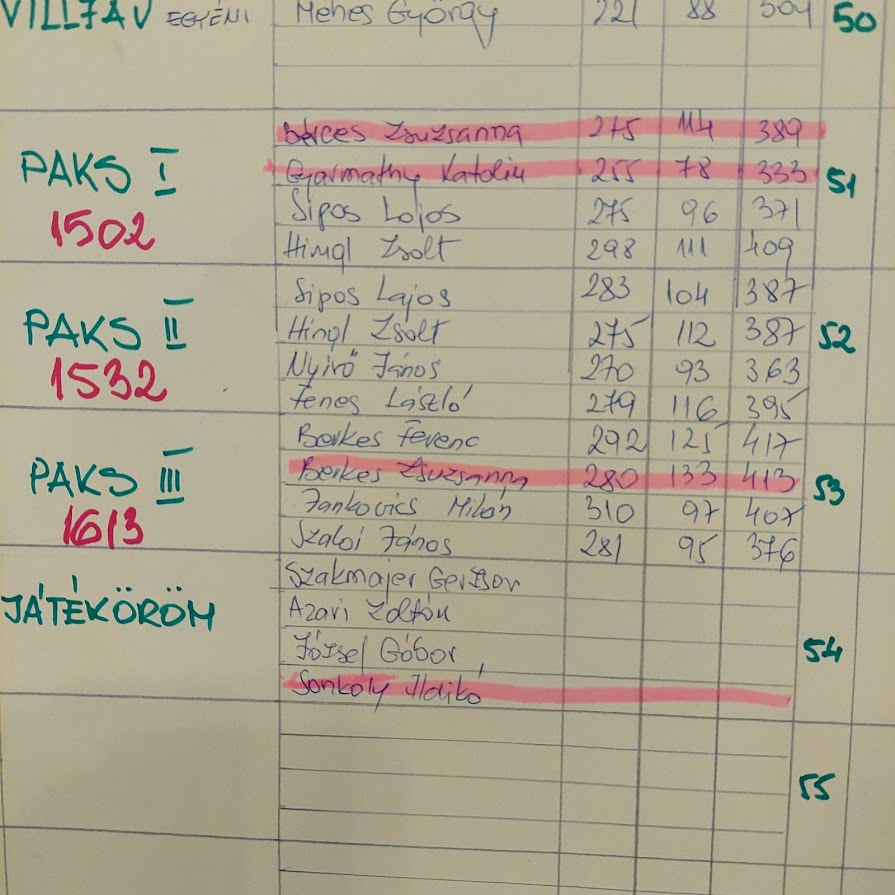 VILLTÁV EGYÉNI Méhes György 221 88 309 50
Bérces Zsuzsanna 275 114 389
PAKS I Gyarmathy Katalin 255 78 333 51
1502 Sipos Lajos 275 96 371
Hingl Zsolt 298 111 409
Sipos Lajos 283 104 387
PAKS II Hingl Zsolt 275 112 387 52
1532 Nyirő János 270 93 363
Fenes László 279 116 395
Berkes Ferenc 292 125 417
PAKS III Berkes Zsuzsanna 280 133 413 53
1613 Jankovics Milán 310 97 407
Szabó János 281 95 376
Szakmajer
JÁTÉKÖRÖM Azari Zoltán
József Gábor 54
Sonkoly Ildikó
55